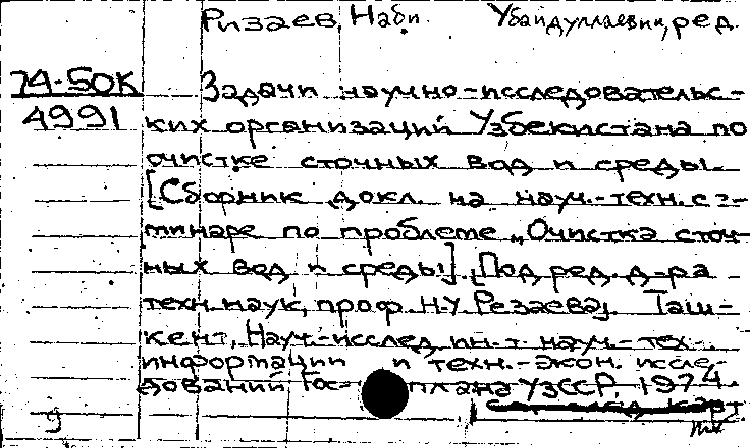 Ризаев, Наби Убайдуллаевич, ред.
74-50К
4991
Задачи научно-исследовательс-
ких организаций Узбекистана по
очистке сточных вод и среды.
[Сборник докл. на науч.-техн. се-
минаре по проблеме „Очистка сточ-
ных вод и среды]. [Под ред. д-ра
техн. наук, проф. Н.У. Резаева]. Таш-
кент, Науч.-исслед. ин-т. науч.-тех.
информации и техн.-экон. иссле-
дований Гос- плана УзССР, 1974.
9